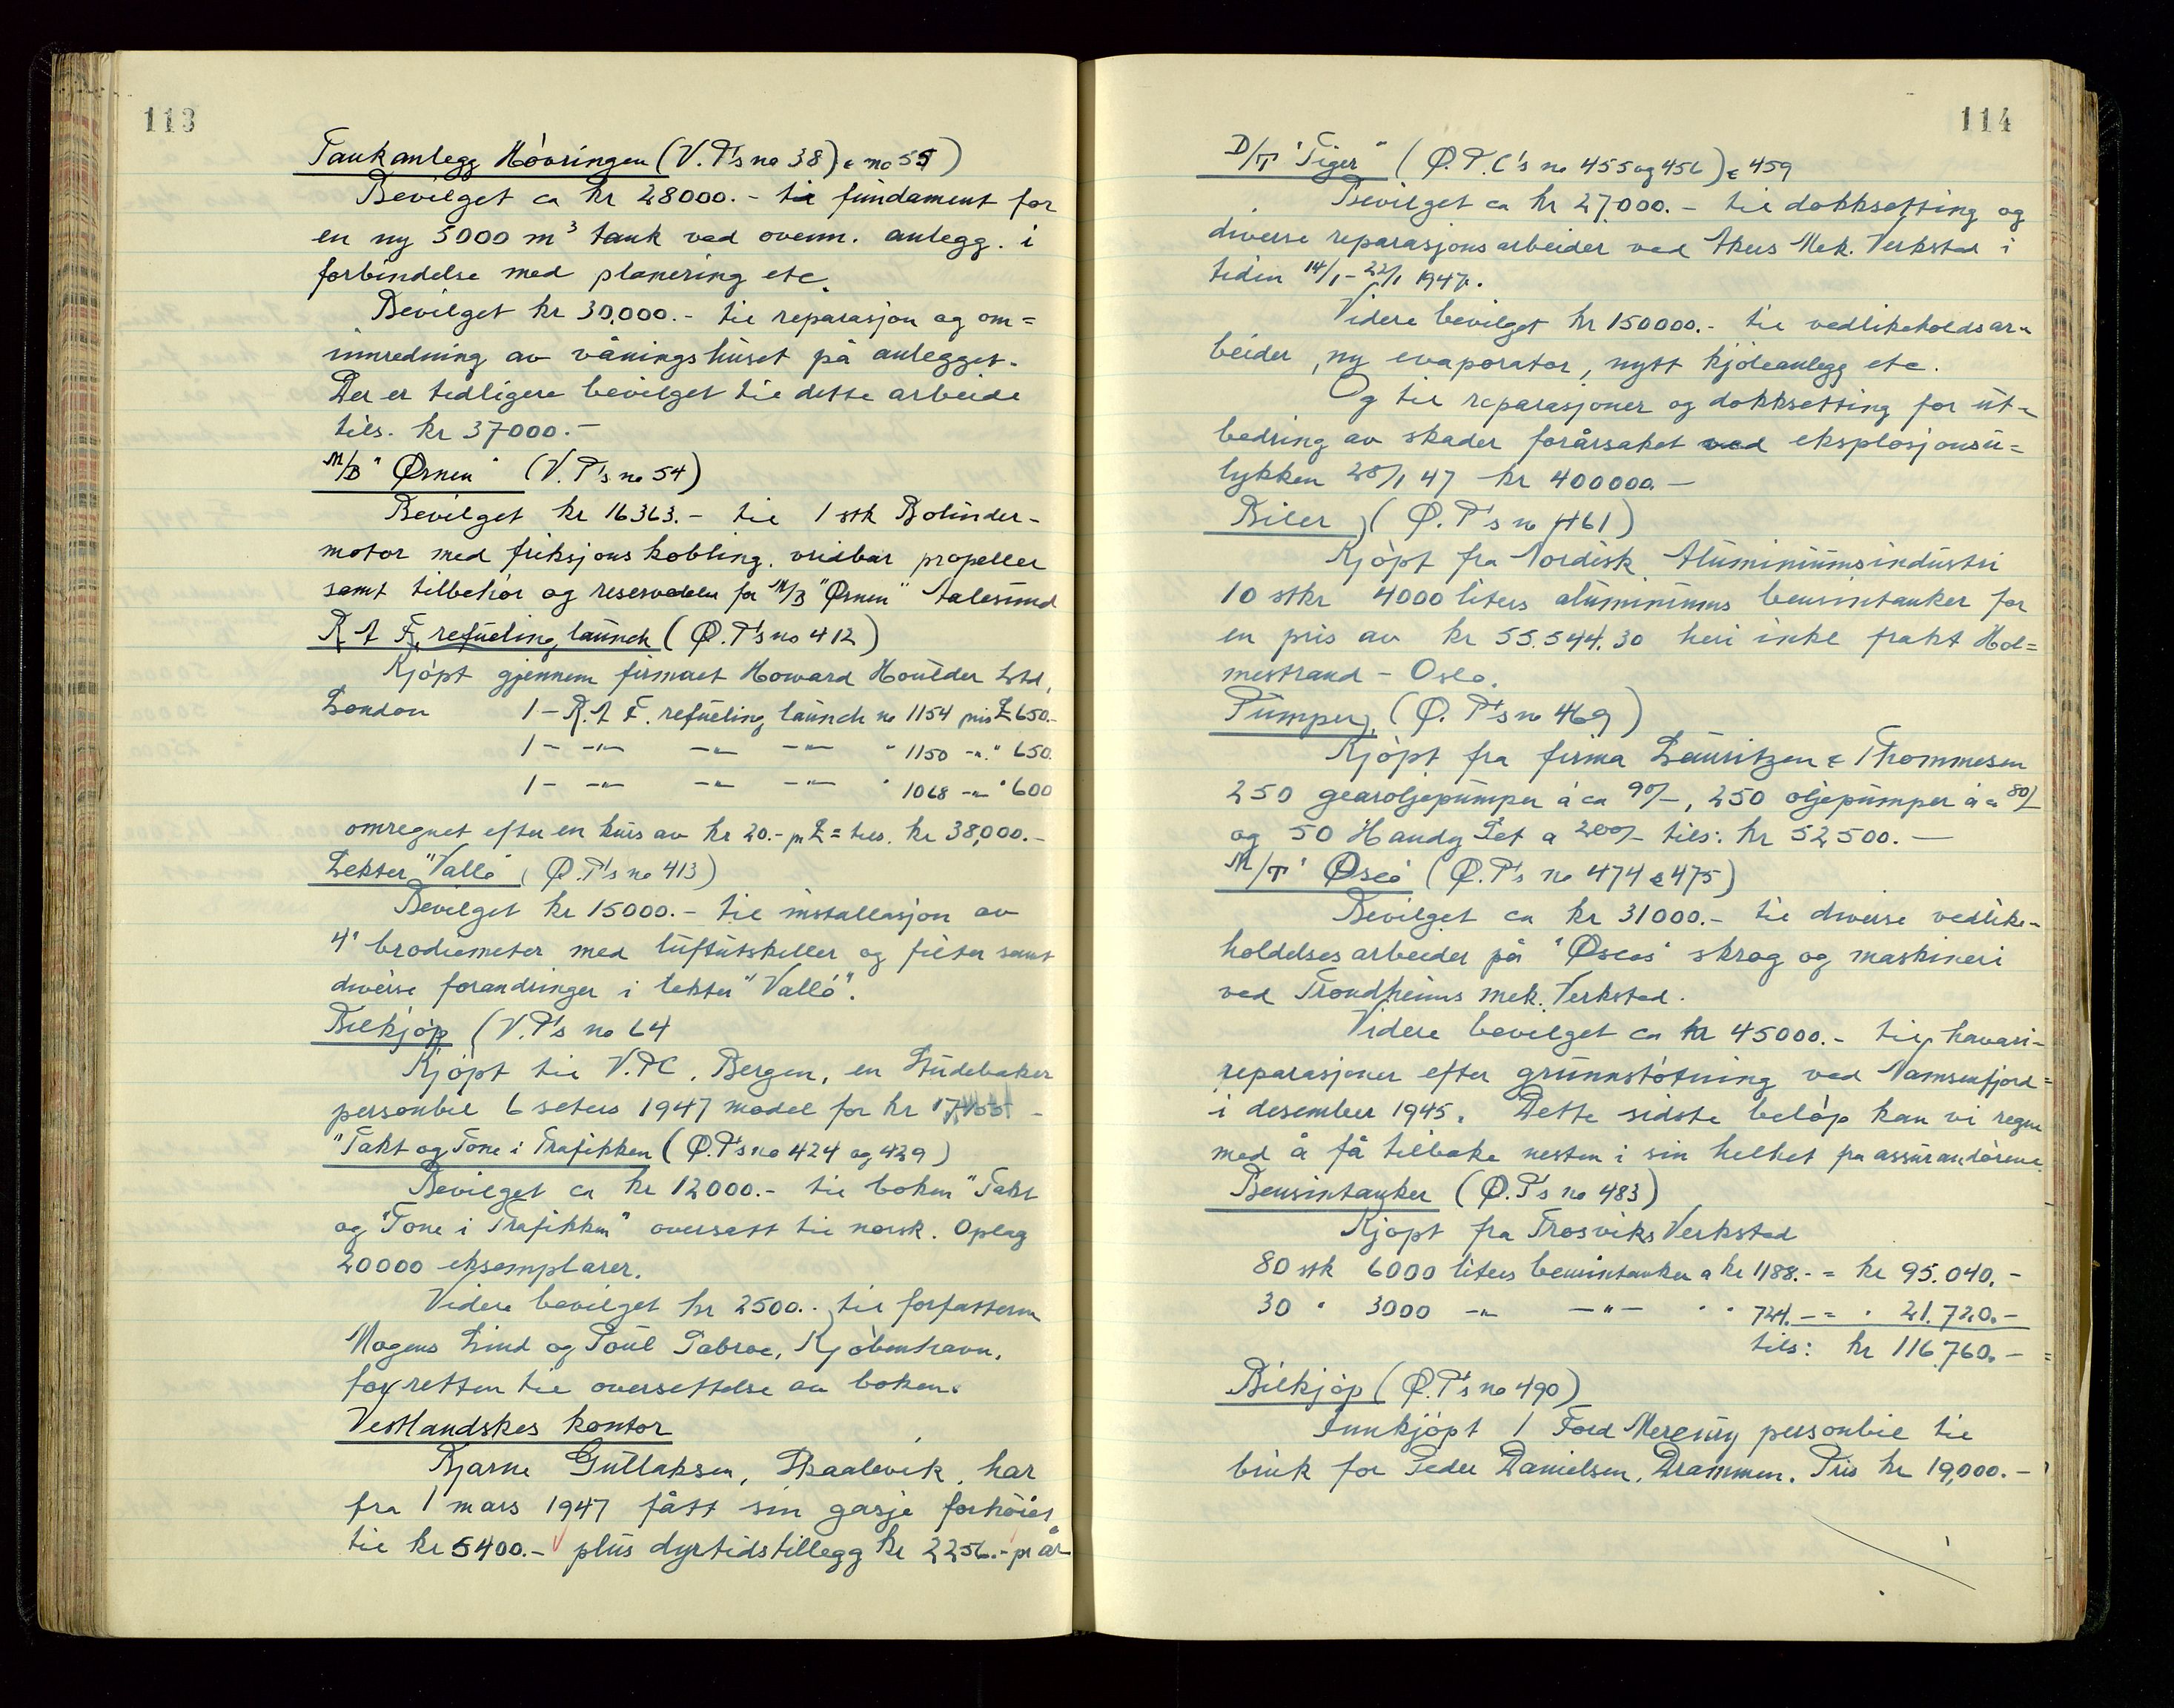 113
Tankanlegg Høvringen (V.P's no 38) & no 55)
Bevilget ca kr 28000.- til fundament for
en ny 5000 m³ tank ved ovenn. anlegg. i
forbindelse med planering etc.
Bevilget kr 30,000.- til reparasjon og om=
innredning av våningshuset på anlegget.
Der er tidligere bevilget til dette arbeide
tils. kr 37000.-
M/B "Ørnen" (V.P's no 54)
Bevilget kr 16363.- til 1 stk Bolinder-
motor med friksjonskobling, vridbar propeller
samt tilbehør og reservedeler for M/B "Ørnen" Aalesund
R.A.F. refueling launch (Ø.P's no 412)
Kjøpt gjennem firmaet Howard Houlder Ltd,
London 1 - R.A.F. refueling launch no 1154 pris £ 650.-
1 - -"- -"- -"- " 1150 -"- " 650.
1 - -"- -"- -"- " 1068 -"- " 600
omregnet efter en kurs av kr 20.- pr £ = tils. kr 38,000.-
Lekter "Vallø" (Ø.P's no 413)
Bevilget kr 15000.- til installasjon av
4" brodiemeter med luftutskiller og filter samt
diverse forandringer i lekter "Vallø".
Bilkjøp (V.P's no 64
Kjøpt til V.P.C, Bergen, en Studebaker
personbil 6 seters 1947 model for kr
"Takt og Tone i Trafikken (Ø.P's no 424 og 429)
Bevilget ca kr 12000.- til boken "Takt
og Tone i Trafikken" oversatt til norsk. Oplag
20000 eksemplarer.
Videre bevilget kr 2500.- til forfatterne
Mogens Lind og Poul Sabroe, Kjøbenhavn,
for retten til oversettelse av boken.
Vestlandskes kontor
Bjarne Gullaksen, Skaalevik, har
fra 1 mars 1947 fått sin gasje forhøiet
til kr 5400.- plus dyrtidstillegg kr 2256.- pr år
114
D/T "Tiger" (Ø.P.C's no 455 og 456) & 459
Bevilget ca kr 27,000.- til dokksetting og
diverse reparasjonsarbeider ved Akers Mek. Verksted i
tiden 14/1 - 22/1 1947.
Videre bevilget kr 150000.- til vedlikeholdsar-
beider, ny evaporator, nytt kjøleanlegg etc.
Og til reparasjoner og dokksetting for ut-
bedring av skader forårsaket ved eksplosjonsu=
lykken 28/1 47 kr 400000.-
Biler (Ø.P's no 461)
Kjøpt fra Nordisk Aluminiumsindustri
10 stkr 4000 liters aluminiums bensintanker for
en pris av kr 55.544.30 heri inkl frakt Hol=
mestrand - Oslo.
Pumper (Ø.P's no 469)
Kjøpt fra firma Lauritzen & Thommesen
250 gearoljepumper à ca 90/-, 250 oljepumper à ca 80/-
og 50 Handy Pet a 200/- tils: kr 52500.-
M/T "Osco" (Ø.P's no 474 & 475)
Bevilget ca kr 31000.- til diverse vedlike-
holdelsesarbeider på "Oscos" skrog og maskineri
ved Trondheims mek. Verksted.
Videre bevilget ca kr 45000.- til havari-
reparasjoner efter grunnstøtning ved Namsenfjord=
i desember 1945. Dette sidste beløp kan vi regne
med å få tilbake nesten i sin helhet fra assurandørene.
Bensintanker (Ø.P's no 483)
Kjøpt fra Trosviks Verksted
80 stk 6000 liters bensintanker a kr 1188.- = kr 95.040.-
30 " 3000 -"- -"- " " 724.- = " 21.720.-
tils: kr 116.760.-
Bilkjøp (Ø.P's no 490)
Innkjøpt 1 Ford Mercury personbil til
bruk for Peder Danielsen, Drammen. Pris kr 19,000.-